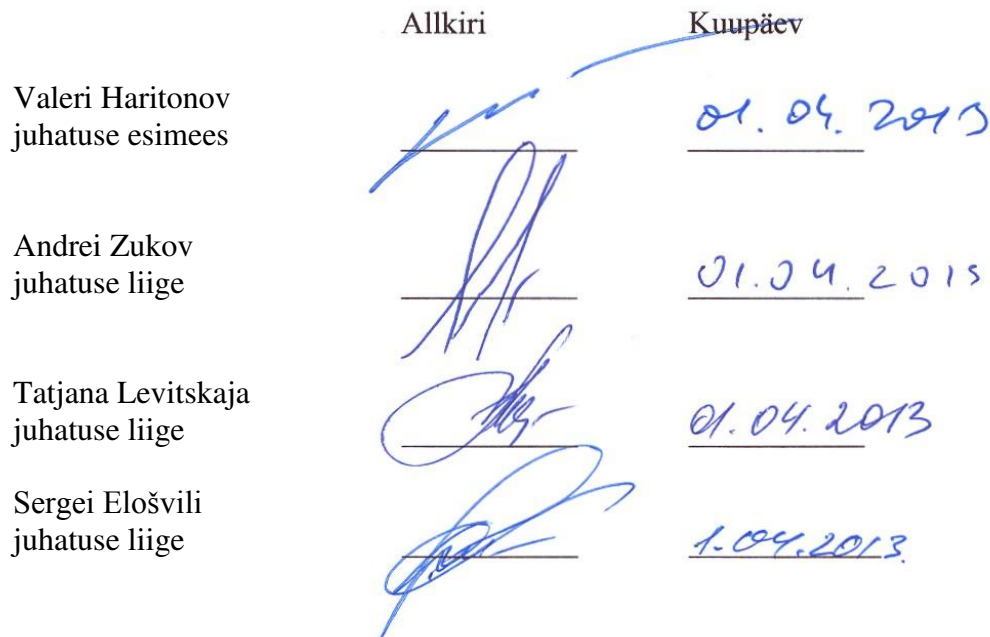 Allkiri Kuupäev
Valeri Haritonov
juhatuse esimees
01.04.2013
Andrei Zukov
juhatuse liige
01.04.2013
Tatjana Levitskaja
juhatuse liige
01.04.2013
Sergei Elošvili
juhatuse liige
1.04.2013.